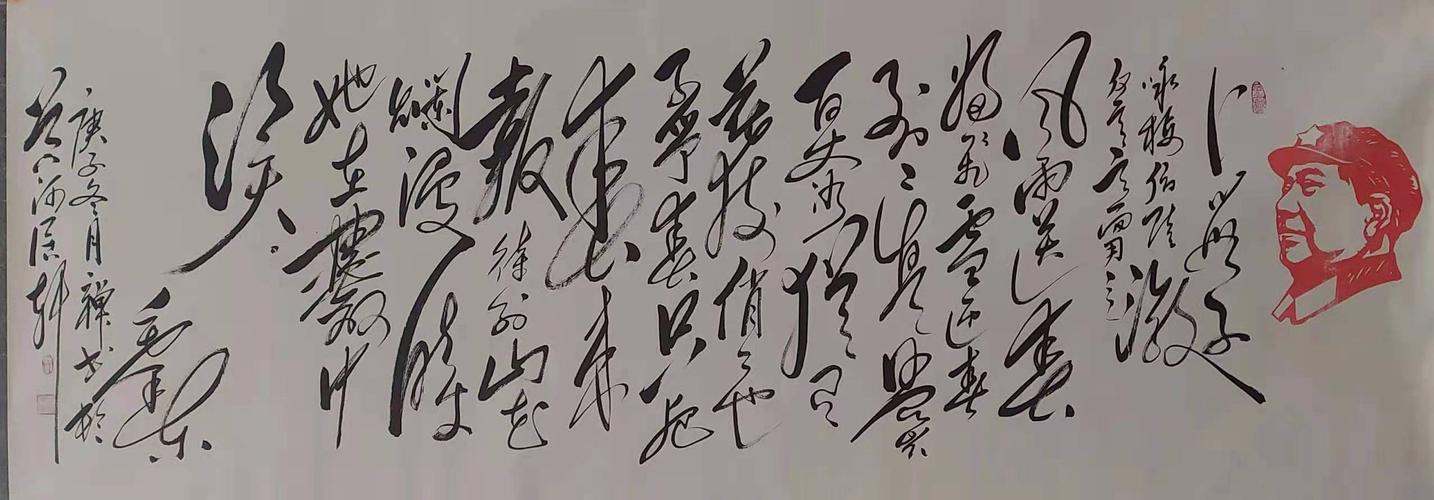 卜算子
咏梅仿陆游
反其意而用之
风雨送春
归飞雪迎春
到已是悬崖
百丈冰犹有
花枝俏俏也
不争春只把
春来
报待到山花
烂漫
时
她在丛中
笑
毛泽东
庚子冬月禅书於